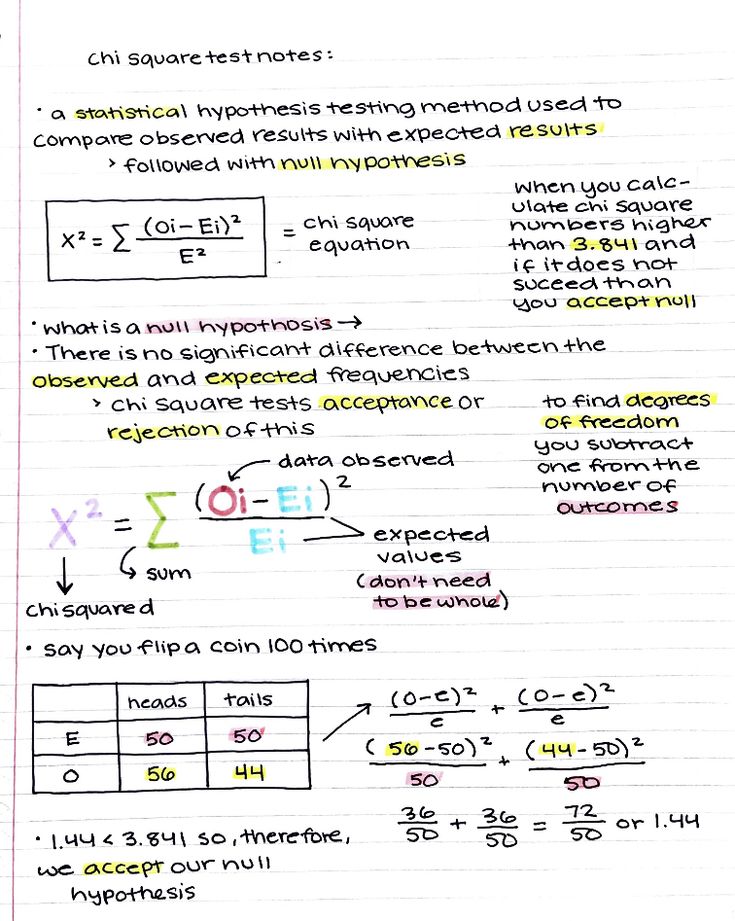 chi square test notes:
• a statistical hypothesis testing method used to
compare observed results with expected results
> followed with null hypothesis
X² = ∑ (Oi - Ei)² / E²
= chi square
equation
when you calc-
ulate chi square
numbers higher
than 3.841 and
if it does not
suceed than
you accept null
• what is a null hypothosis →
• There is no significant difference between the
observed and expected frequencies
> chi square tests acceptance or
rejection of this
to find degrees
of freedom
you subtract
one from the
number of
outcomes
data observed
X² = ∑ (Oi - Ei)² / Ei
expected
values
(don't need
to be whole)
sum
chi squared
• say you flip a coin 100 times
heads tails
E 50 50
O 56 44
(O-e)²/e + (O-e)²/e
(56-50)²/50 + (44-50)²/50
36/50 + 36/50 = 72/50 or 1.44
• 1.44 < 3.841 so, therefore,
we accept our null
hypothesis